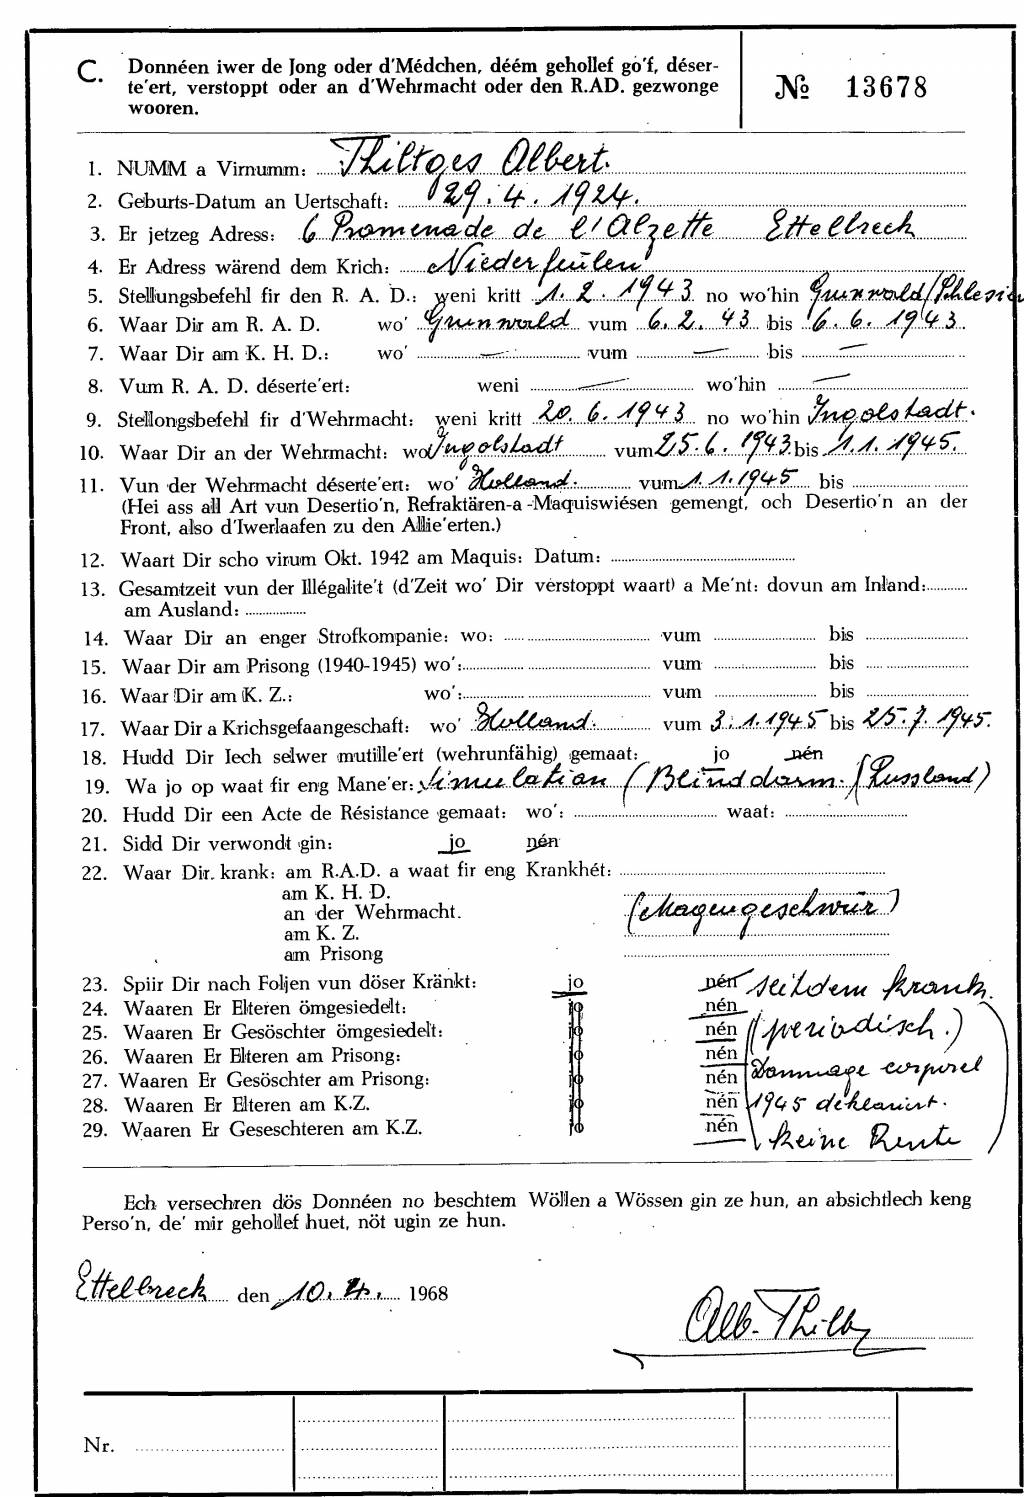 C. Donnéen iwer de Jong oder d'Médchen, déém gehollef go'f, déser-
te'ert, verstoppt oder an d'Wehrmacht oder den R.AD. gezwonge
wooren.
№ 13678
1. NUMM a Virnumm: Thiltges Albert.
2. Geburts-Datum an Uertschaft: 29.4.1924.
3. Er jetzeg Adress: 6 Promenade de l'Alzette Ettelbreck
4. Er Adress wärend dem Krich: Niederfeulen
5. Stellungsbefehl fir den R. A. D.: weni kritt 1.2.1943 no wo'hin Grunwald/Schlesien
6. Waar Dir am R. A. D. wo' Grunwald vum 6.2.43 bis 6.6.1943
7. Waar Dir am K. H. D.: wo' — vum — bis —
8. Vum R. A. D. déserte'ert: weni — wo'hin —
9. Stellongsbefehl fir d'Wehrmacht: weni kritt 20.6.1943 no wo'hin Ingolstadt.
10. Waar Dir an der Wehrmacht: wo Ingolstadt vum 25.6.1943 bis 1.1.1945.
11. Vun der Wehrmacht déserte'ert: wo' Holland. vum 1.1.1945 bis
(Hei ass all Art vun Desertio'n, Refraktären-a-Maquiswiésen gemengt, och Desertio'n an der
Front, also d'Iwerlaafen zu den Allie'erten.)
12. Waart Dir scho virum Okt. 1942 am Maquis: Datum:
13. Gesamtzeit vun der Illégalite't (d'Zeit wo' Dir verstoppt waart) a Me'nt: dovun am Inland:
am Ausland:
14. Waar Dir an enger Strofkompanie: wo: vum bis
15. Waar Dir am Prisong (1940-1945) wo': vum bis
16. Waar Dir am K. Z.: wo': vum bis
17. Waar Dir a Krichsgefaangeschaft: wo' Holland. vum 3.1.1945 bis 25.7.1945.
18. Hudd Dir Iech selwer mutille'ert (wehrunfähig) gemaat: jo nén
19. Wa jo op waat fir eng Mane'er: Simulation (Blinddarm. (Russland)
20. Hudd Dir een Acte de Résistance gemaat: wo': waat:
21. Sidd Dir verwondt gin: jo nén
22. Waar Dir krank: am R.A.D. a waat fir eng Krankhét:
am K. H. D.
an der Wehrmacht. (Magengeschwür)
am K. Z.
am Prisong
23. Spiir Dir nach Foljen vun döser Kränkt: jo nén seitdem krank.
24. Waaren Er Elteren ömgesiedelt: jo nén
25. Waaren Er Gesöschter ömgesiedelt: jo nén (periodisch.)
26. Waaren Er Elteren am Prisong: jo nén
27. Waaren Er Gesöschter am Prisong: jo nén Dommage corporel
28. Waaren Er Elteren am K.Z. jo nén 1945 deklariert.
29. Waaren Er Geseschteren am K.Z. jo nén keine Rente
Ech versechren dös Donnéen no beschtem Wöllen a Wössen gin ze hun, an absichtlech keng
Perso'n, de' mir gehollef huet, nöt ugin ze hun.
Ettelbreck den 10.4. 1968
Alb. Thiltg
Nr.